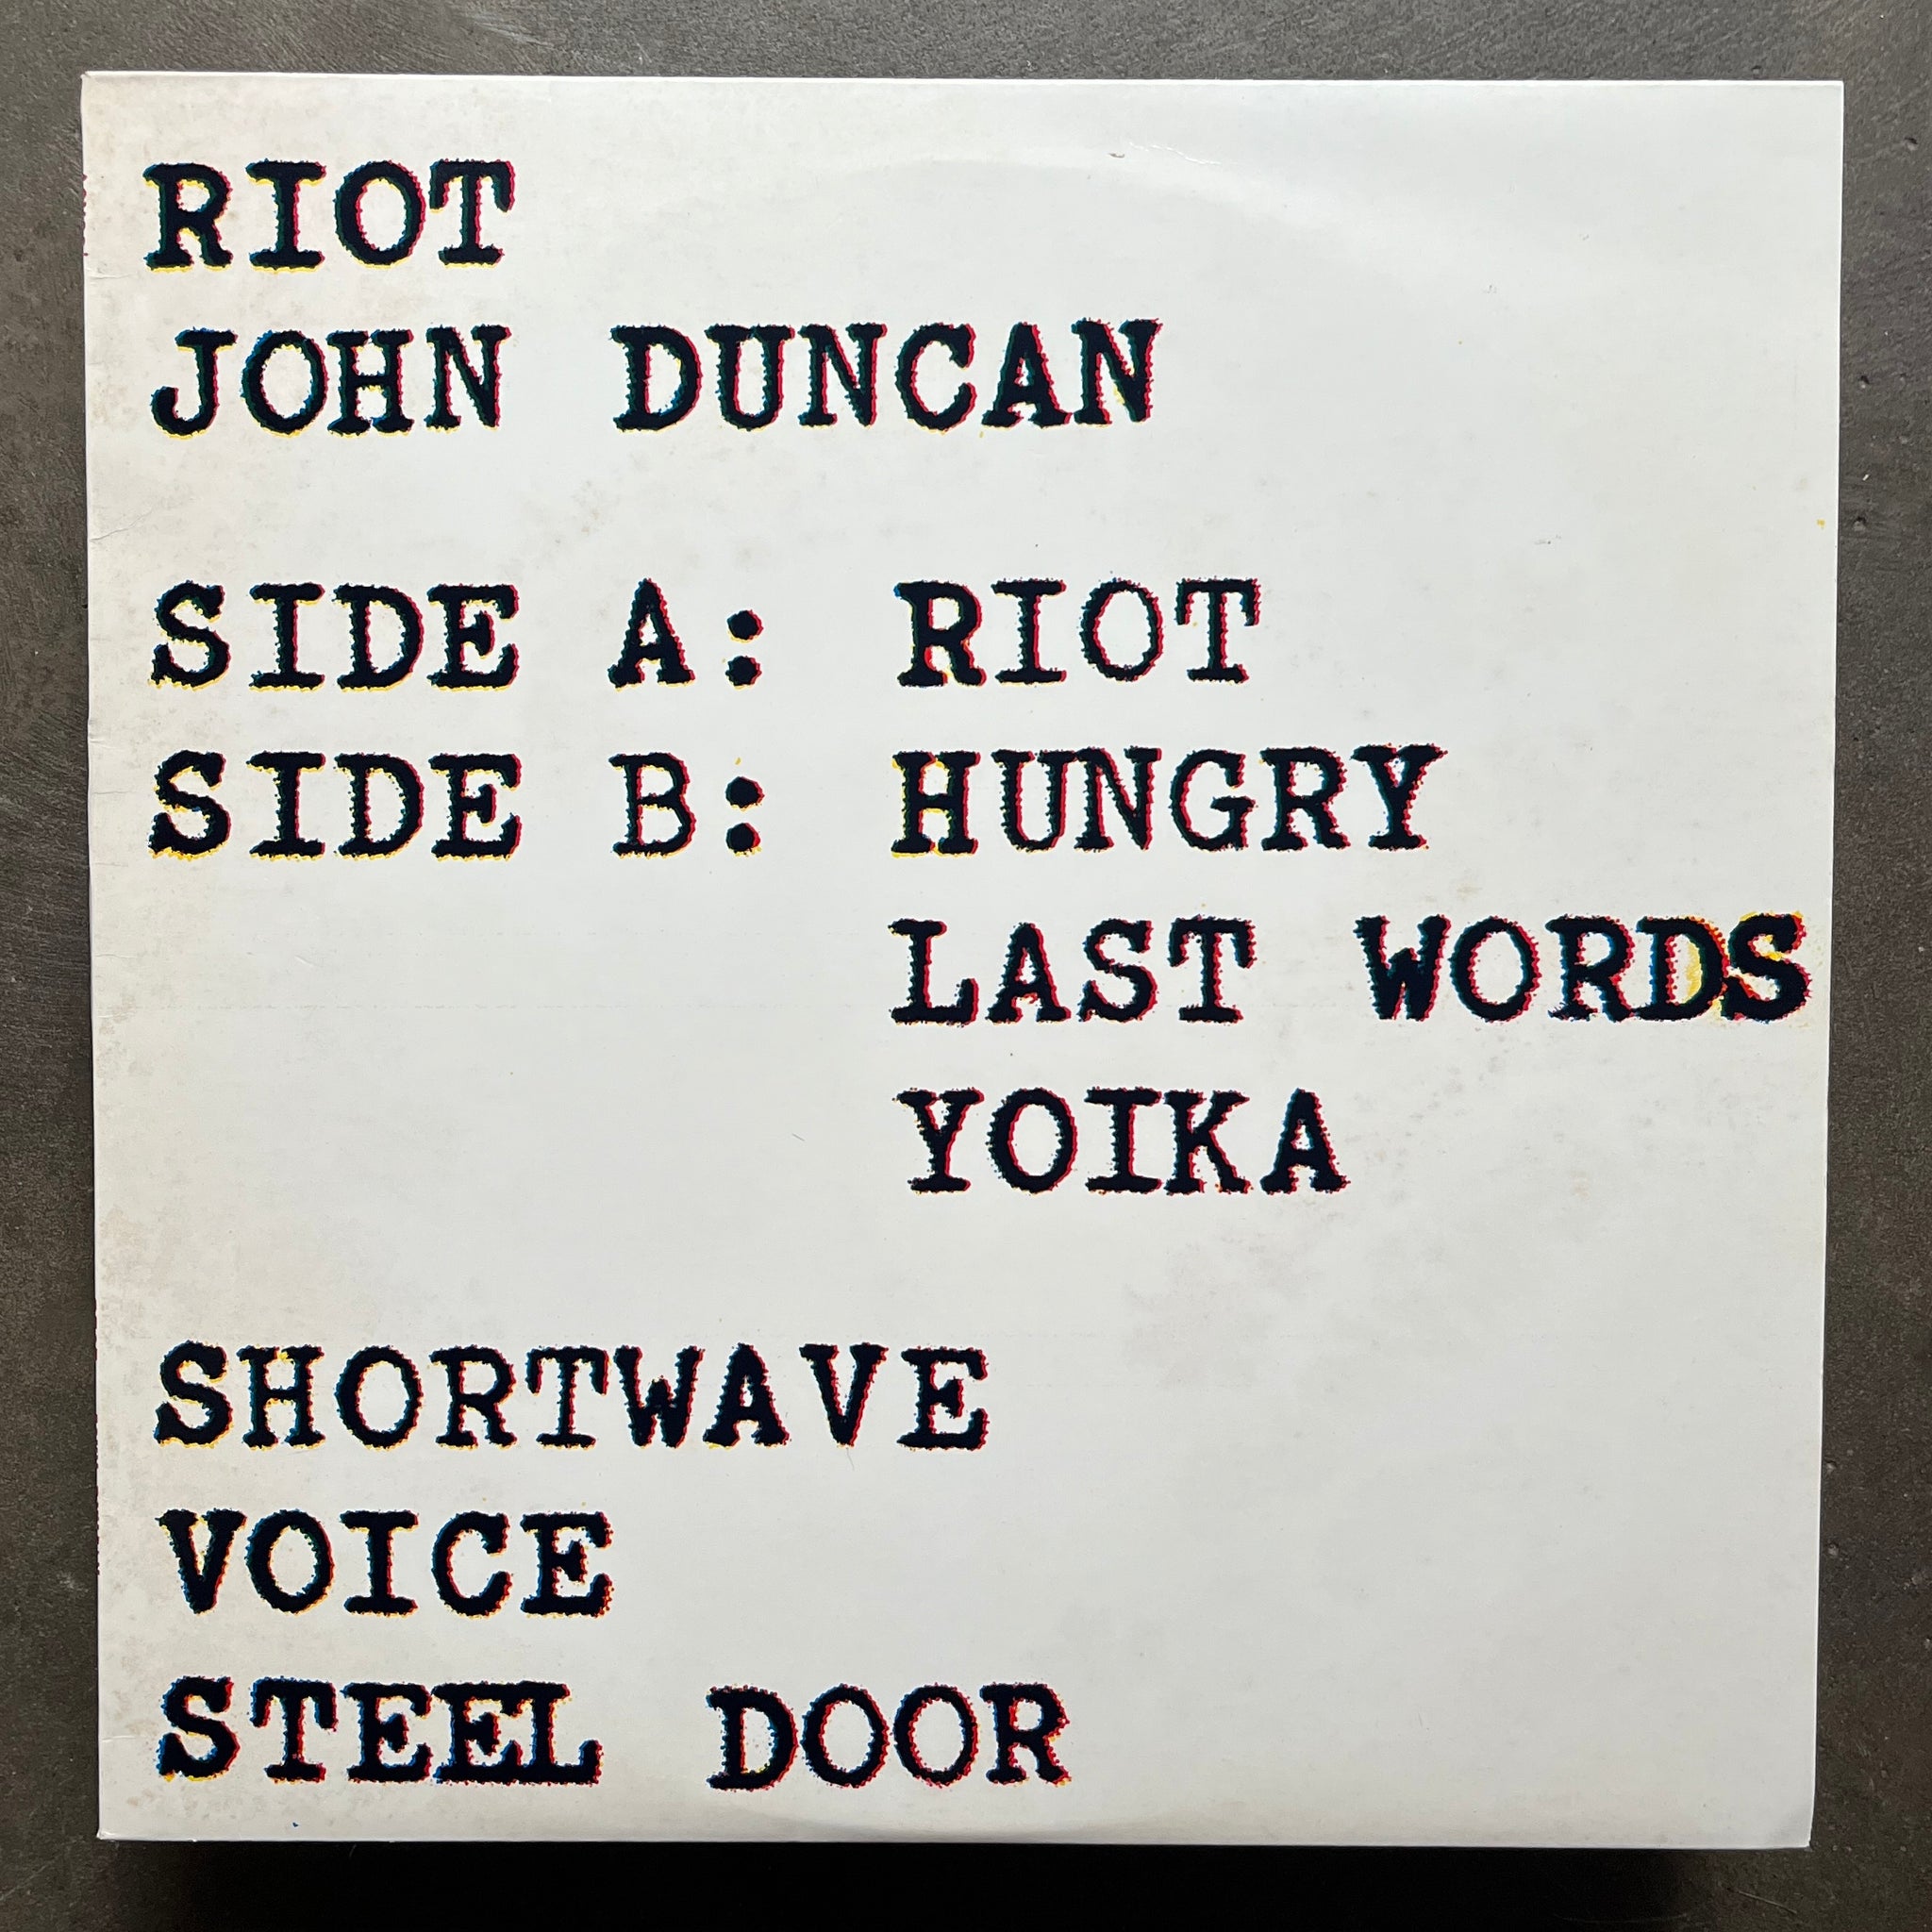 RIOT
JOHN DUNCAN
SIDE A: RIOT
SIDE B: HUNGRY
LAST WORDS
YOIKA
SHORTWAVE
VOICE
STEEL DOOR